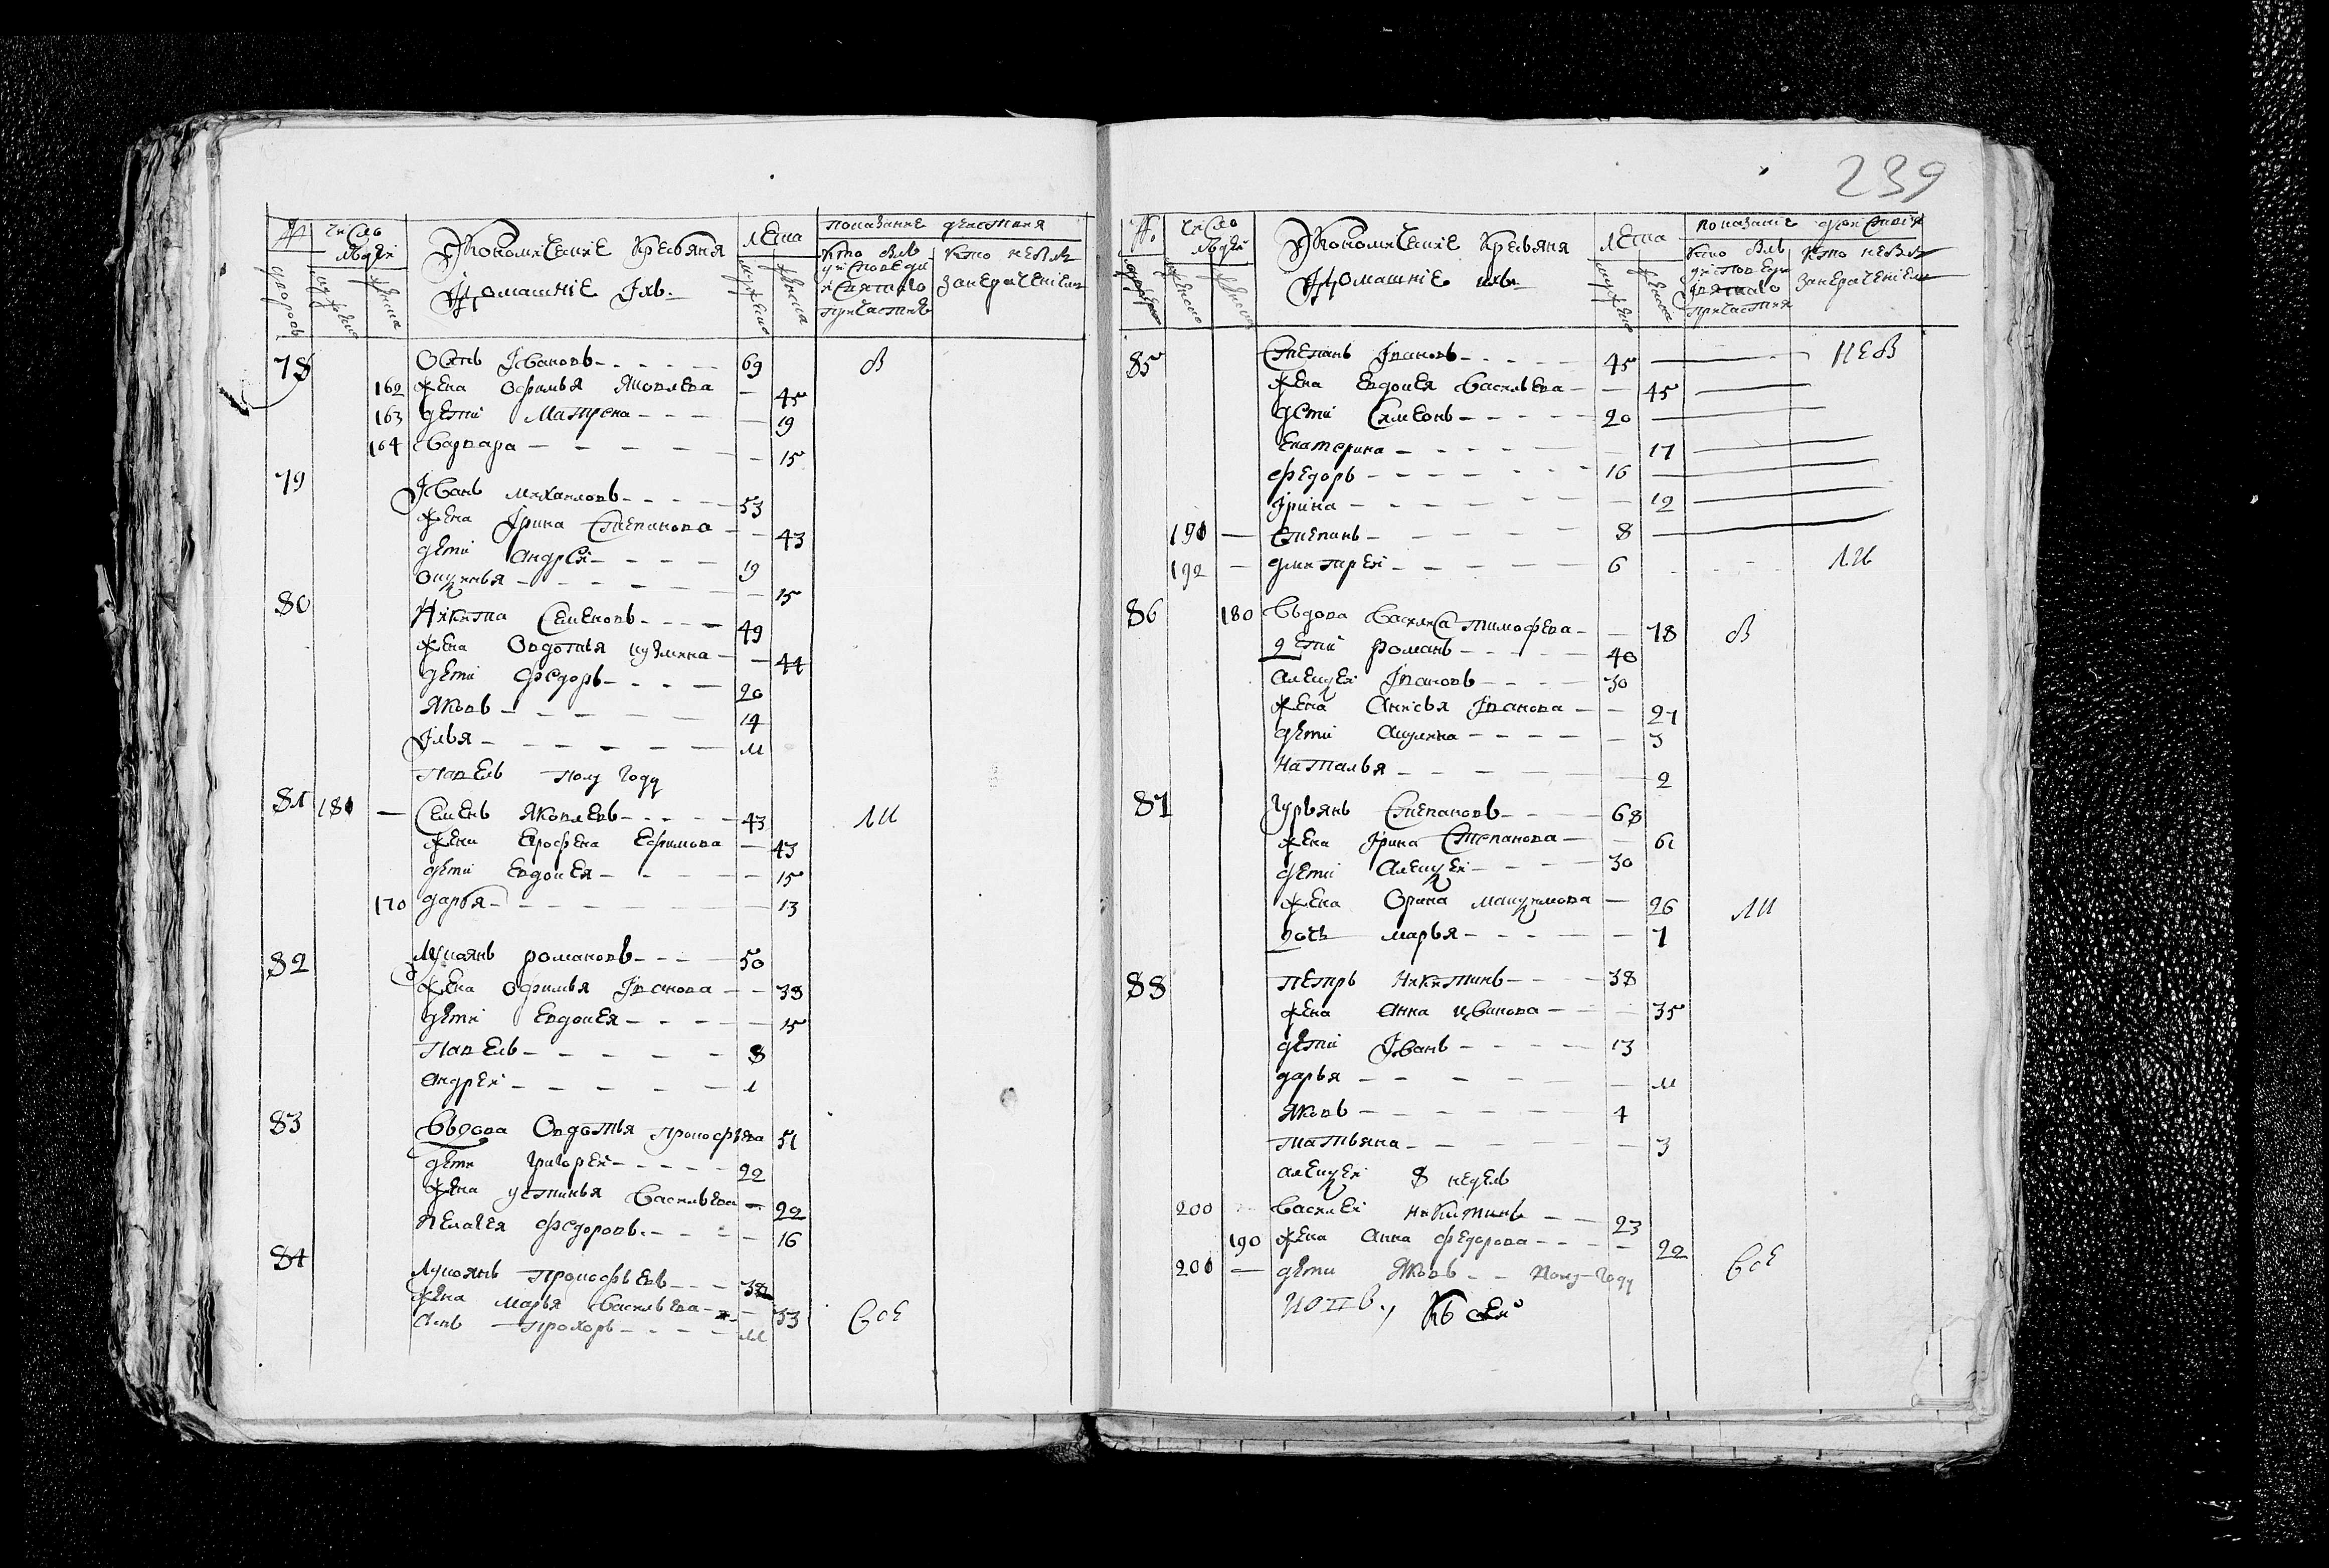 239
№ число людеи Экономические крестьяня лета показание действия
Домашние Ихъ
дворовъ мужеска женска мужеска женска
кто былъ у исповеди и святаго причастия
кто не былъ за нерачениемъ
78 Осипъ Ивановъ 69 в
162 жена Офимья Яковлева 45
163 дети Матрена 19
164 Варвара 15
79 Иванъ михаиловъ 53
жена Ирина Степанова 43
дети андреи 19
окулинья 15
80 Никита Семеновъ 49
жена Овдотья кузмина 44
дети федоръ 20
Яковъ 14
Илья 11
Павелъ полу году
81 181 Семенъ Яковлевъ 43 ЛИ
жена Ерофена Ефимова 43
дети Евдокея 15
170 дарья 13
82 Лукоянъ романовъ 50
жена Офимья Иванова 38
дети Евдокея 15
Павелъ 8
андреи 1
83 Вдова Овдотья прокофьева 51
дети григореи 22
жена устинья Васильева 22
Пелагея федоровъ 16
84 Лукоянъ прокофьевъ 38
жена марья Васильева 33
сынъ прохоръ 11 Все
№ число людеи Экономические крестьяня лета показание действия
Домашние ихъ
кто былъ у исповеди святаго причастия
кто не былъ за нерачениемъ
85 Степанъ Ивановъ 45 НЕВ
жена евдокея Васильева 45
дети Симеонъ 20
Екатерина 17
федоръ 16
Ирина 12
191 Степанъ 8
192 дмитреи 6 ЛИ
86 180 Вдова Тимофева 78 в
дети романъ 40
алексеи Ивановъ 30
жена Анисья Иванова 27
дети Акулина 3
Наталья 2
87 гурьянъ Степановъ 68
жена Ирина Степанова 61
дети алексеи 30
жена Орина максимова 26 ЛИ
дочь марья 7
88 петръ Никитинъ 38
жена Анна иванова 35
дети Иванъ 13
дарья 11
Яковъ 4
татьяна 3
алексеи 8 недель
200 Василеи никитинъ 23
190 жена Анна федорова 22
201 дети Яковъ полу году Все